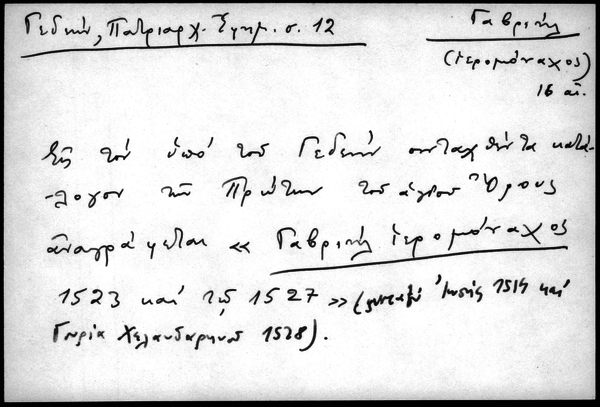 Γεδεών, Πατριαρχ. Ἐφημ. σ. 12
Γαβριήλ
(ἱερομόναχος)
16 αἰ.
Εἰς τόν ὑπό του Γεδεών συνταχθέντα κατά-
-λογον τῶν Πρώτων τοῦ ἁγίου Ὄρους
ἀναγράφεται « Γαβριήλ ἱερομόναχος
1523 καί τῷ 1527 » (μεταξύ 1514 καί
Γαβρία Χελανδαρηνοῦ 1528).